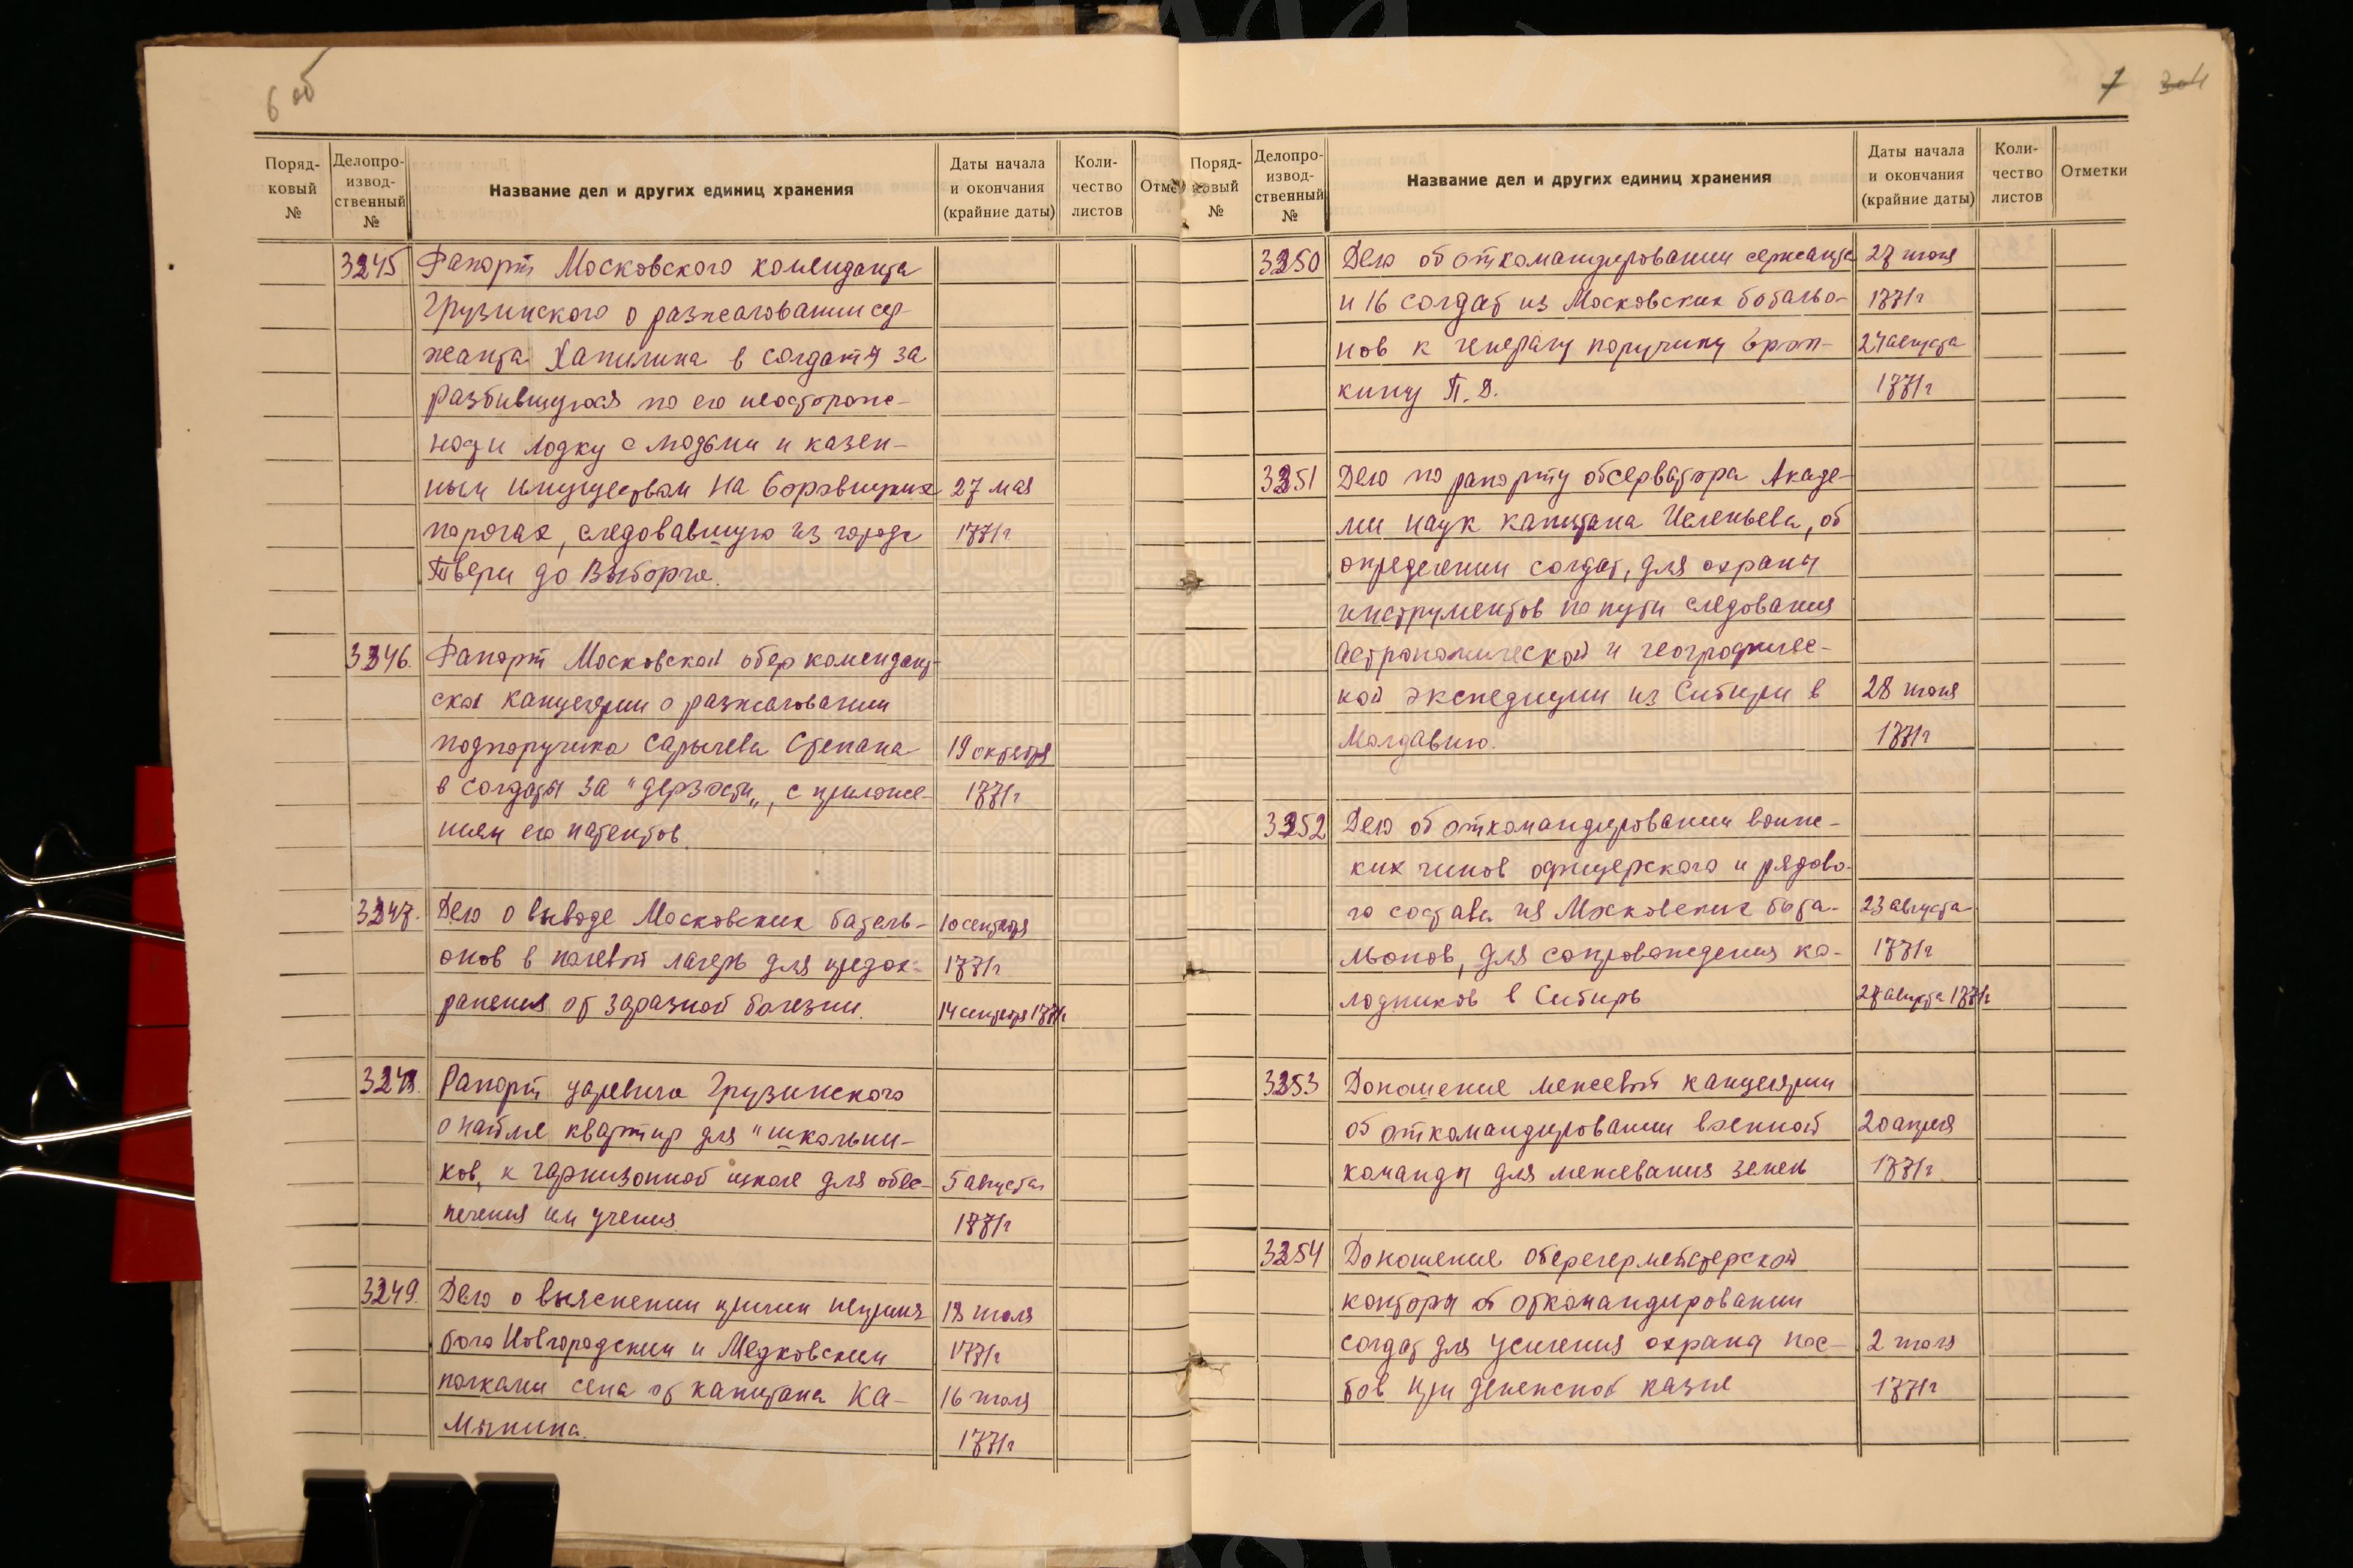 6 об
Поряд-
ковый
№
Делопро-
извод-
ственный
№
Название дел и других единиц хранения
Даты начала
и окончания
(крайние даты)
Коли-
чество
листов
Отме
3245 Рапорт Московского коменданта
Грузинского о разжаловании сер-
жанта Хапилина в солдаты за
разбившуюся по его неосторож-
ности лодку с людьми и казен-
ным имуществом на Боровицких 27 мая
порогах, следовавшую из города 1771г
Твери до Выборга.
3246. Рапорт Московской обер комендант-
ской канцелярии о разжаловании
подпоручика Сарычева Степана 19 октября
в солдаты за "дерзости", с приложе- 1771г
нием его патентов.
3247. Дело о выводе Московских баталь- 10 сентября
онов в полевой лагерь для предох- 1771г
ранения от заразной болезни. 14 сентября 1771г
3248. Рапорт царевича Грузинского
о найме квартир для "школьни-
ков" к гарнизонной школе для обес- 5 августа
печения им учения. 1771г
3249. Дело о выяснении причин неприня 18 июля
того Новгородским и Медковским 1771г
полками сена от капитана Ка- 16 июля
мынина. 1771г
7 304
Поряд-
ковый
№
Делопро-
извод-
ственный
№
Название дел и других единиц хранения
Даты начала
и окончания
(крайние даты)
Коли-
чество
листов
Отметки
3250 Дело об откомандировании сержанта 27 июля
и 16 солдат из Московских батальо- 1771г
нов к генералу поручику Ероп- 27 августа
кину П. Д. 1771г
3251 Дело по рапорту обсерватора Акаде-
мии наук капитана Исленьева, об
определении солдат, для охраны
инструментов по пути следования
астрономической и географичес-
кой экспедиции из Сибири в 28 июля
Молдавию. 1771г
3252 Дело об откомандировании воинс-
ких чинов офицерского и рядово-
го состава из Московских бата- 23 августа
льонов, для сопровождения ко- 1771г
лодников в Сибирь 27 августа 1771г
3253 Доношение межевой канцелярии
об откомандировании военной 20 апреля
команды для межевания земель 1771г.
3254 Доношение оберегермейстерской
конторы об откомандировании
солдат для усиления охраны пос- 2 июля
тов при денежной казне 1771г